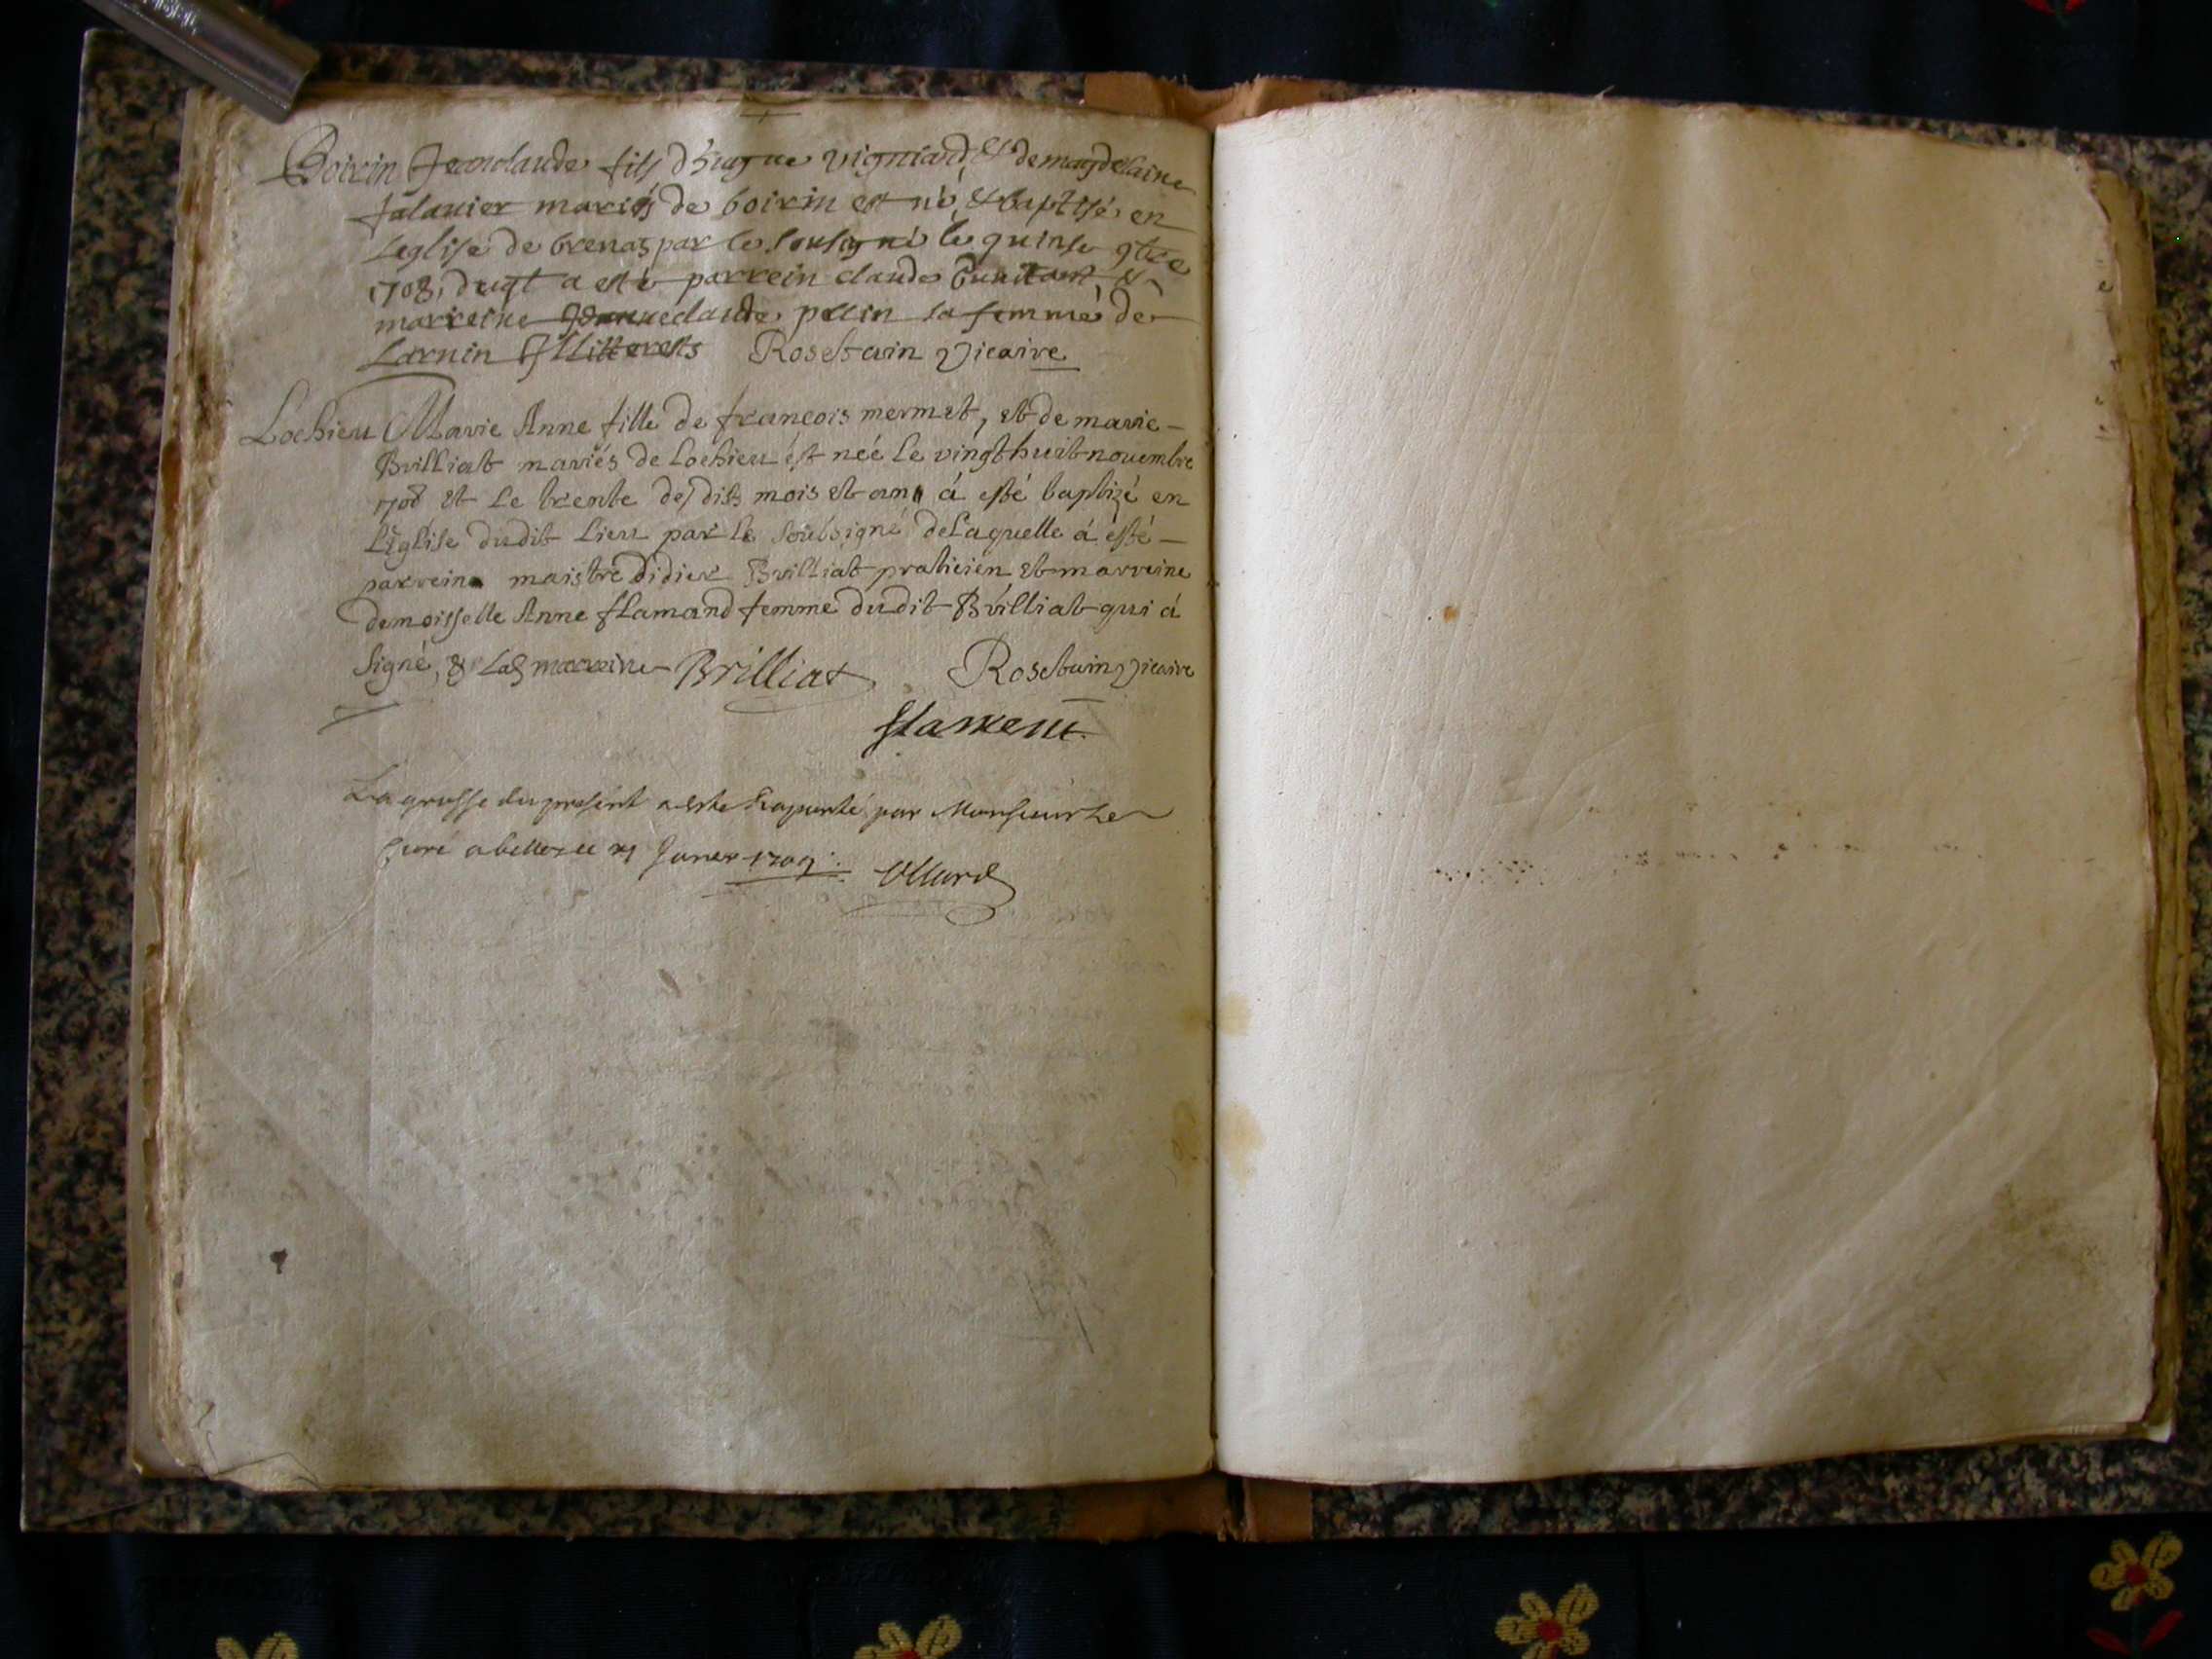 Boirin Jeanclaude fils d'hugue vigniard et de magdelaine
falauier mariés de boirin est né, & baptisé en
Leglise de brenas par le sousigné le quinse 9bre
1708, duqt a esté parrein claude &
marreine Jeanneclaude perrin la femme de
Larnin Illitterests Rosetain Vicaire
Lochieu Marie Anne fille de francois mermet, et de marie-
Brilliat mariés de Lochieu est née le vingthuit nouembre
1708 et le trente des dits mois et an á esté baptizé en
LEglise dudit Lieu par le soubsigné de Laquelle á esté-
parrein maistre didier Brilliat praticien et marreine
demoisselle Anne flamand femme dudit Brilliat qui á
signé, & Lad marreine Brilliat Rosetain Vicaire
La grosse du present a este Raporté par Monsieur Le
Curé a belley ce Janer 1709